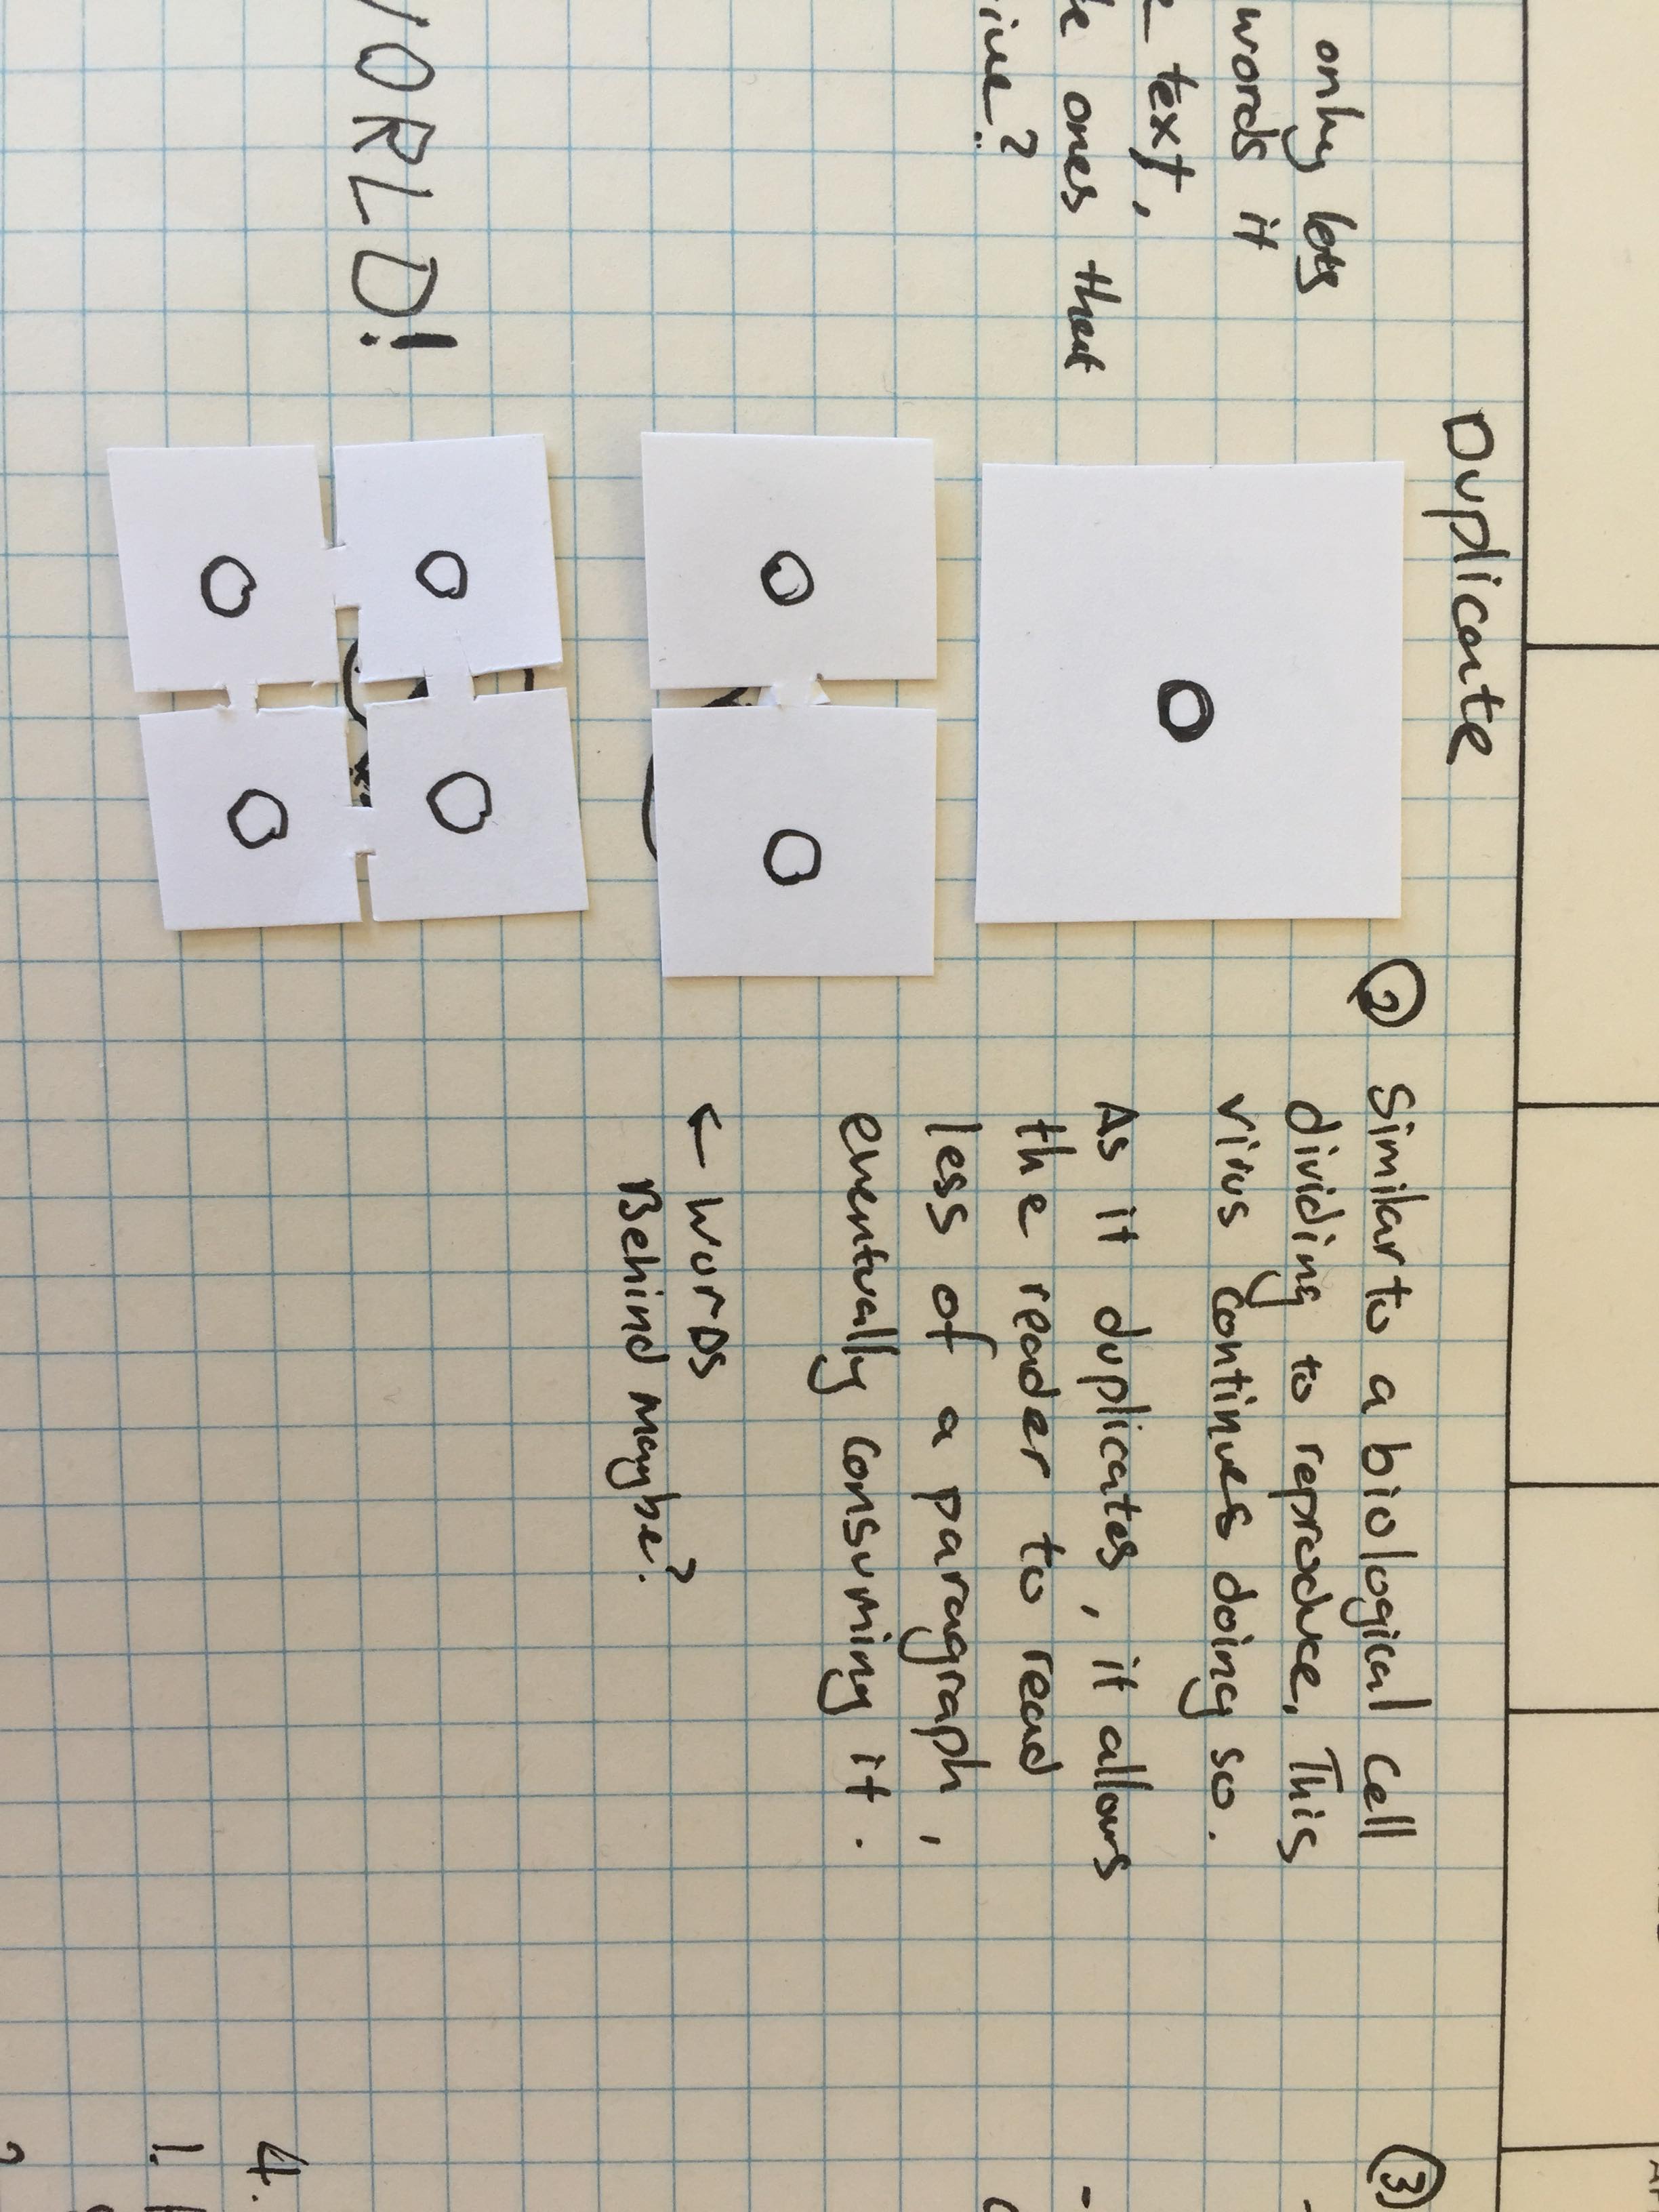 Duplicate
only lets
words it
text,
ones that
② Similar to a biological cell
dividing to reproduce. This
virus continues doing so.
As it duplicates, it allows
the reader to read
less of a paragraph,
eventually consuming it.
← Words
Behind maybe?
WORLD!
③
4.
1.